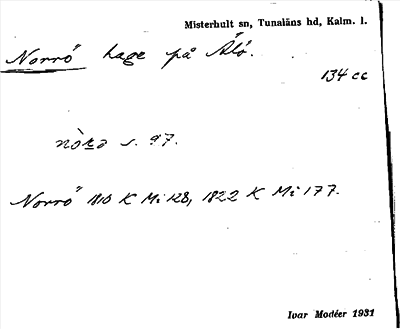 Misterhult sn, Tunaläns hd, Kalm. l.
Norrö hage på Älö.
134 cc
s. 97.
Norrö 1810 K Mi 128, 1822 K Mi 177.
Ivar Modéer 1931